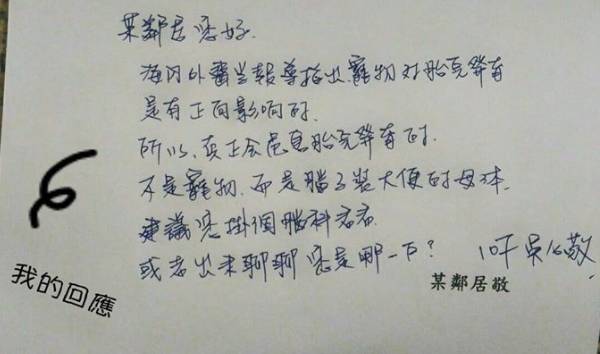 某鄰居您好.
海內外醫生報導指出寵物對胎兒發育
是有正面影响的.
所以,真正会危息胎兒發育的.
不是寵物,而是腦子裝大便的母体.
建議您掛個腦科看看.
或者出来聊聊您是哪一下? 10F 吳公敬
某鄰居敬
我的回應